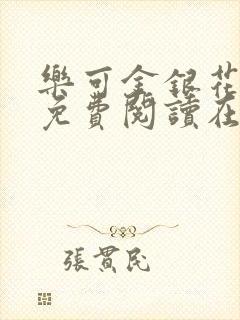 樂可金銀花
免費閱讀在
張貫民